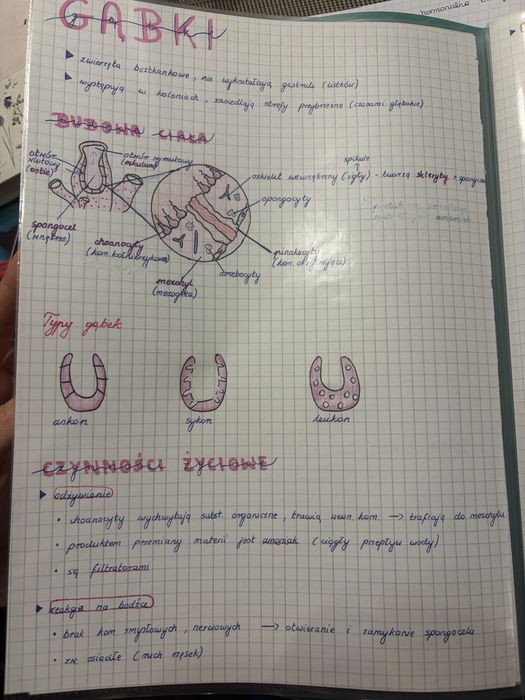 hormonalno
GĄBKI
▶ zwierzęta beztkankowe, nie wykształcają gastruli (listków)
▶ występują w koloniach, zasiedlają strefy przybrzeżne (czasami głębokie)
BUDOWA CIAŁA
otwór wlotowy (ostie)
otwór wyrzutowy (oskulum)
spikule
szkielet wewnętrzny (igły) - tworzą skleryty + spongina
spongocyty
amoniak
spongocel (wnętrze)
choanocyty (kom. kołnierzykowe)
pinakocyty
amebocyty
mezohyl (mezoglea)
Typy gąbek
askon
sykon
leukon
CZYNNOŚCI ŻYCIOWE
▶ odżywianie
• choanocyty wychwytują subst. organiczne, trawią wewn. kom. → trafiają do mezohylu
• produktem przemiany materii jest amoniak (ciągły przepływ wody)
• są filtratorami
▶ reakcja na bodźce
• brak kom. zmysłowych, nerwowych → otwieranie i zamykanie spongocelu
• zw. osiadłe (ruch rzęsek)